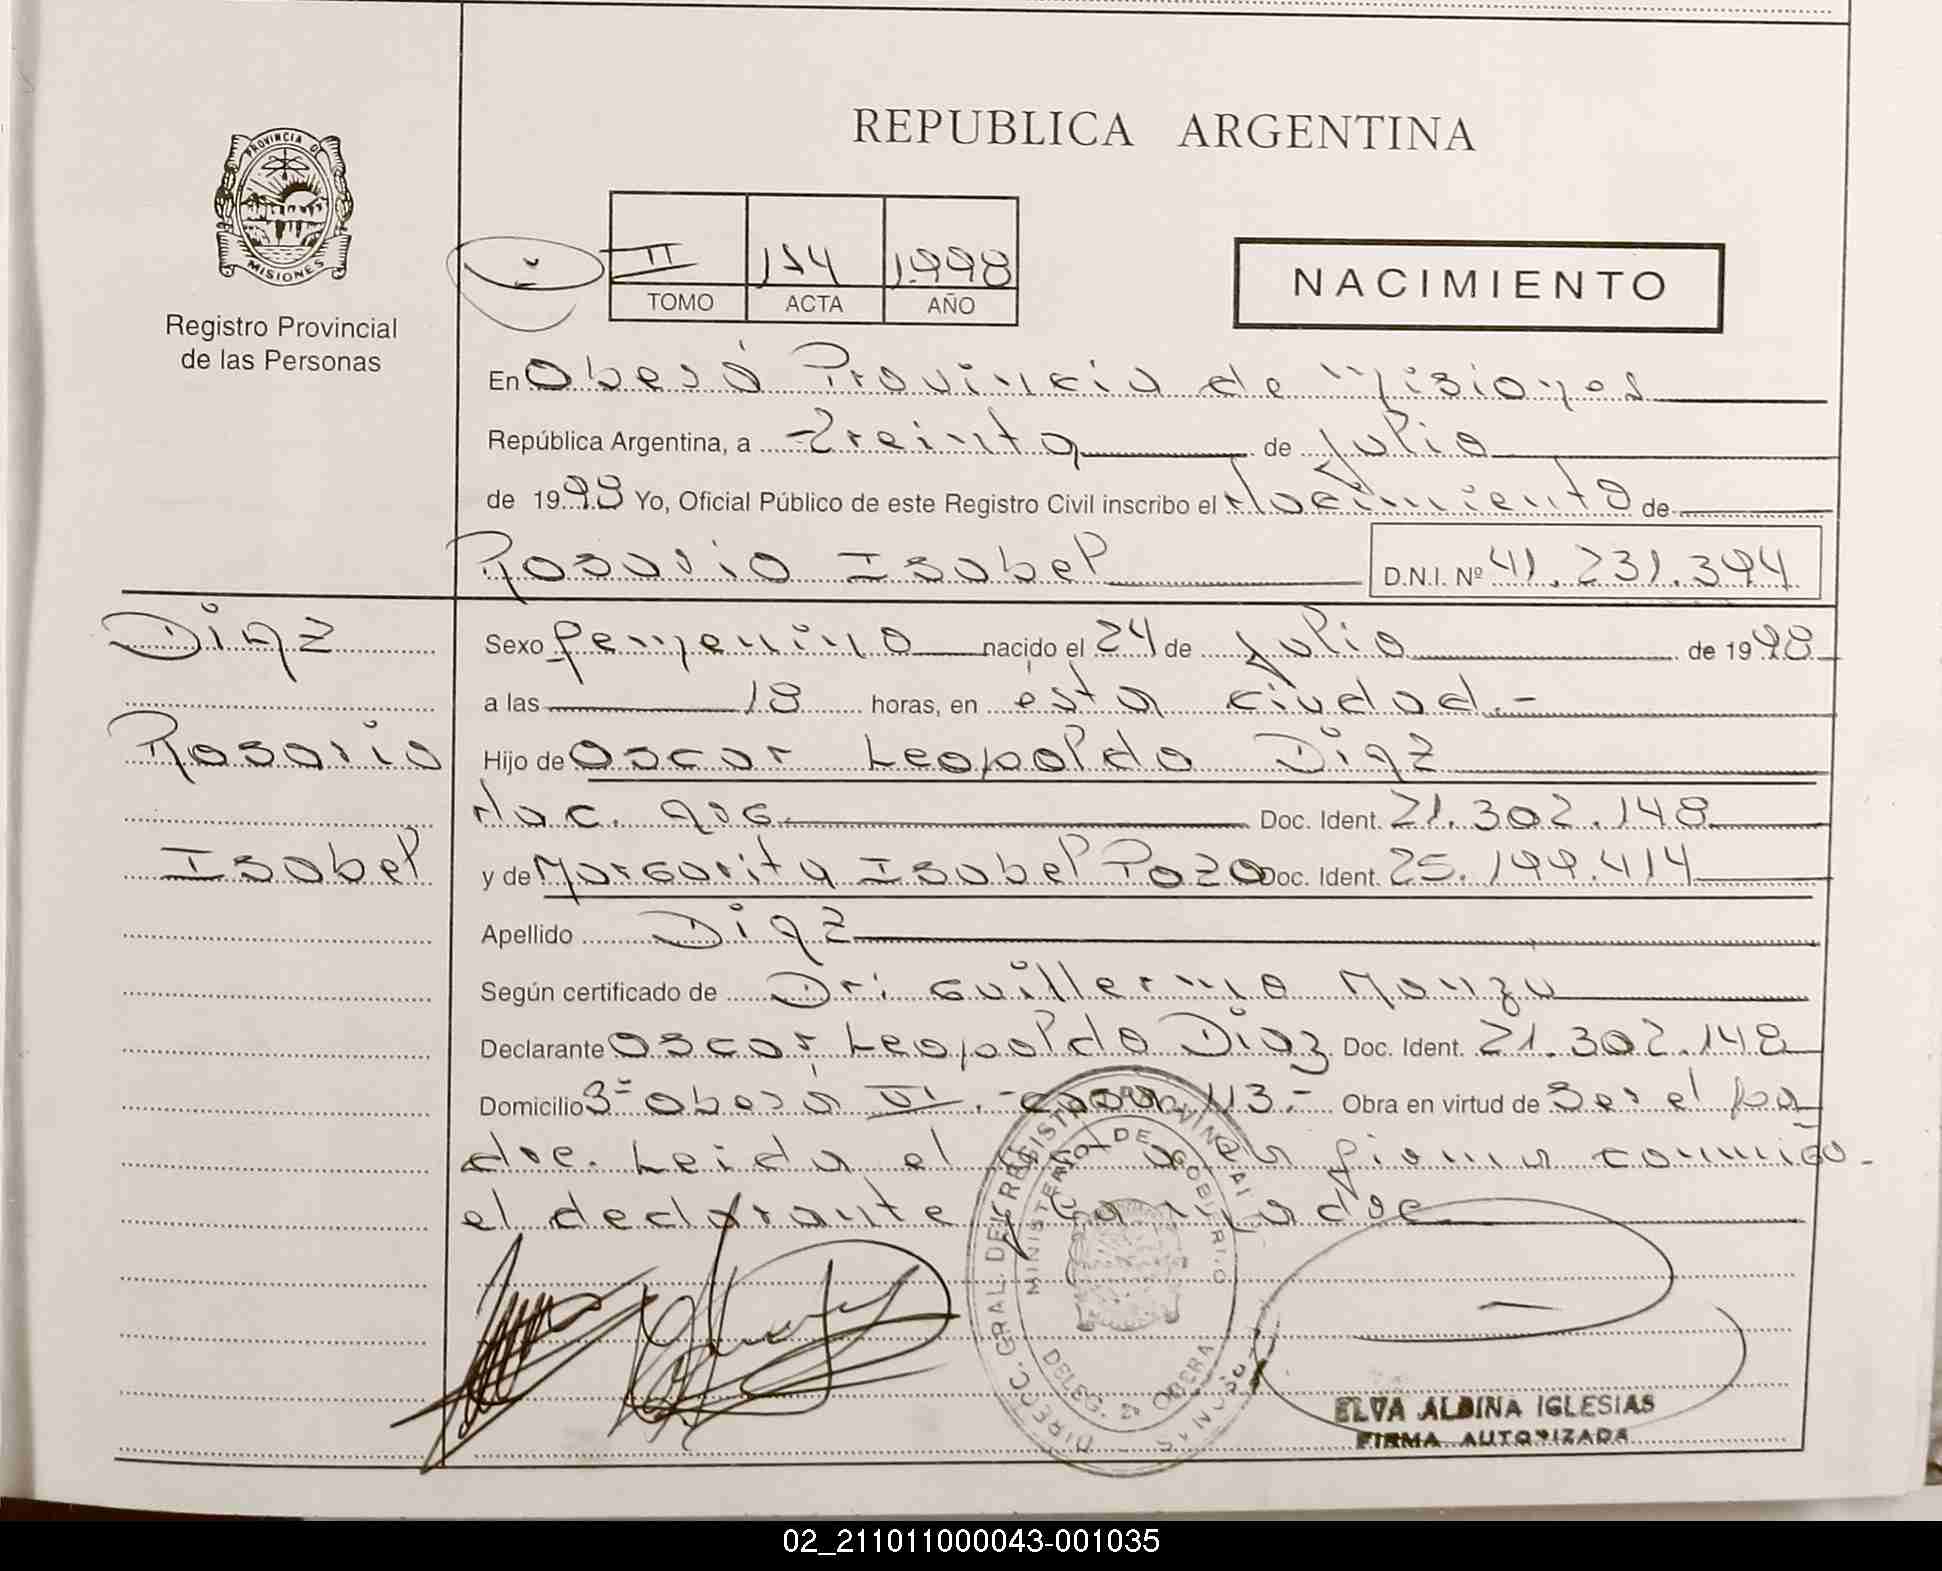 REPUBLICA ARGENTINA
PROVINCIA DE
MISIONES
Registro Provincial
de las Personas
II 194 1.998
TOMO ACTA AÑO
NACIMIENTO
En Oberá Provincia de Misiones
República Argentina, a Treinta de Julio
de 1998 Yo, Oficial Público de este Registro Civil inscribo el Nacimiento de
Rosario Isabel D.N.I. Nº 41.231.394
Diaz
Rosario
Isabel
Sexo femenino nacido el 24 de Julio de 1998
a las 18 horas, en ésta ciudad.-
Hijo de Oscar Leopoldo Diaz
Nac. arg. Doc. Ident. 21.302.148
y de Margarita Isabel Pozo Doc. Ident. 25.199.414
Apellido Diaz
Según certificado de Dr: Guillermo
Declarante Oscar Leopoldo Diaz Doc. Ident. 21.302.148
Domicilio Bº Oberá VI.- casa 113.- Obra en virtud de Ser el pa
dre. Leida el acta firma conmigo
el declarante y la madre
DIRECC. GRAL. DEL REGISTRO PROVINCIAL
MINISTERIO DE GOBIERNO
DELEG. OBERA
ELVA ALBINA IGLESIAS
FIRMA AUTORIZADA
02_211011000043-001035